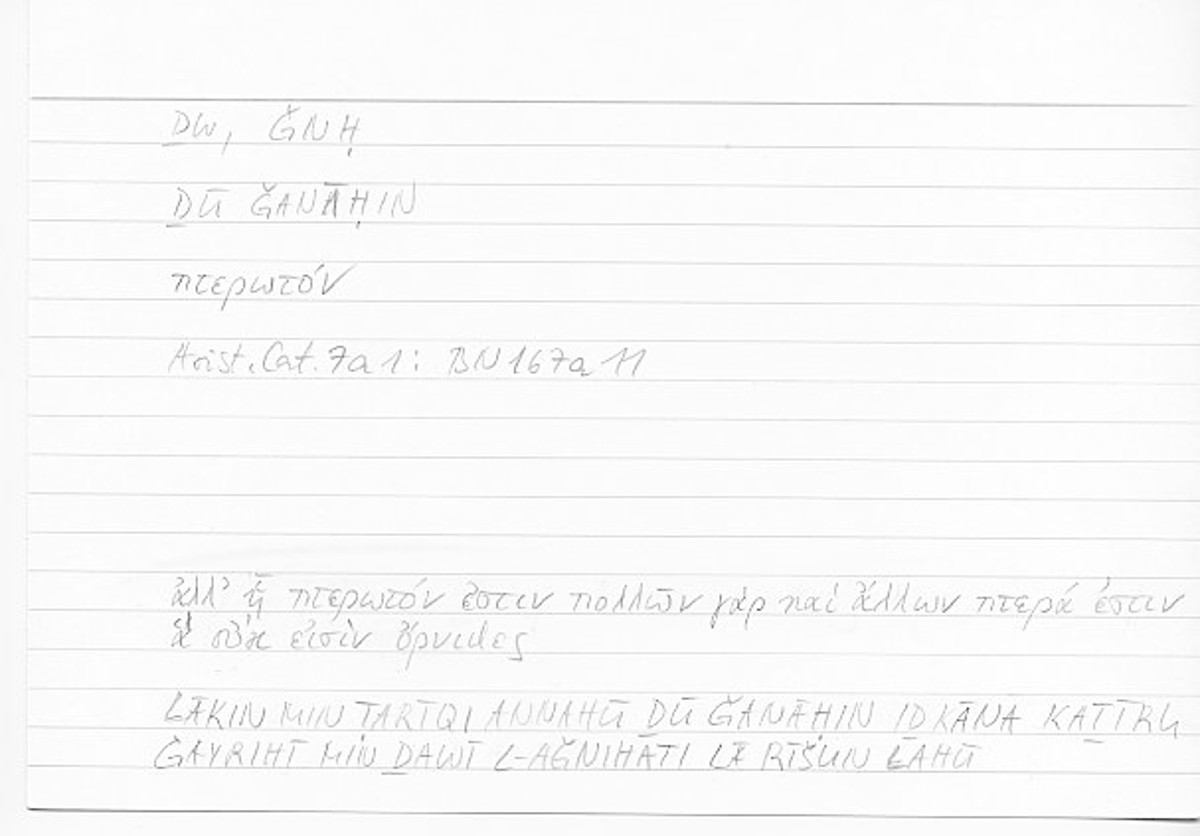 ḎW, ǦNḤ
ḎŪ ǦANĀḤIN
πτερωτόν
Arist. Cat. 7a1: BN 167a 11
ἀλλ’ ᾗ πτερωτόν ἐστιν πολλῶν γάρ καί ἄλλων πτερά ἐστιν
ἃ οὐκ εἰσὶν ὄρνιθες
LĀKIN MIN ṬARĪQI ANNAHŪ ḎŪ ǦANĀḤIN IḎ KĀNA KAṮĪRU
ĠAYRIHĪ MIN ḎAWĪ L-AǦNIḤATI LĀ RĪŠUN LAHŪ